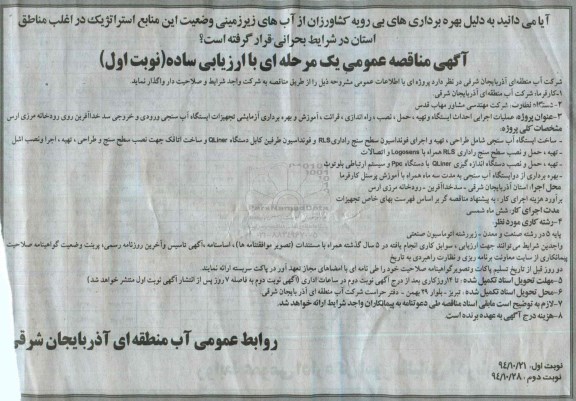 آیا می دانید به دلیل بهره برداری های بی رویه کشاورزان از آب های زیرزمینی وضعیت این منابع استراتژیک در اغلب مناطق
استان در شرایط بحرانی قرار گرفته است؟
آگهی مناقصه عمومی یک مرحله ای با ارزیابی ساده(نوبت اول)
شرکت آب منطقه‌ای آذربایجان شرقی در نظر دارد پروژه ای با اطلاعات عمومی مشروحه ذیل را از طریق مناقصه به شرکت واجد شرایط و صلاحیت دار واگذار نماید.
۱-کارفرما: شرکت آب منطقه‌ای آذربایجان شرقی
۲- دستگاه نظارت: شرکت مهندسی مشاور مهاب قدس
۳-عنوان پروژه: عملیات اجرایی احداث ایستگاه و تهیه، حمل، نصب، راه اندازی، قرائت، آموزش و بهره برداری آزمایشی تجهیزات ایستگاه آب سنجی ورودی و خروجی سد خداآفرین روی رودخانه مرزی ارس
مشخصات کلی پروژه:
- ساخت ایستگاه آب سنجی شامل طراحی، تهیه و اجرای فونداسیون سطح سنج راداری RLS و فونداسیون طرفین کابل دستگاه QLiner و ساخت اتاقک جهت نصب سطح سنج و طراحی، تهیه، اجرا ونصب اشل
- تهیه، حمل و نصب سطح سنج راداری RLS همراه با Logosens و اتصالات
- تهیه، حمل و نصب دستگاه اندازه گیری QLiner با دستگاه Ppc و سیستم ارتباطی بلوتوث
- بهره برداری از دو ایستگاه آب سنجی به مدت سه ماه همراه با آموزش پرسنل کارفرما
محل اجرا: استان آذربایجان شرقی - سد خداآفرین - رودخانه مرزی ارس
برآورد هزینه اجرای کار، به پیشنهاد مناقصه گر بر اساس فهرست بهای خاص تجهیزات
مدت اجرای کار: شش ماه شمسی
۴-رشته کاری مورد نظر:
پایه ۵ در رشته صنعت و معدن - زیررشته اتوماسیون صنعتی
واجدین شرایط می‌توانند جهت ارزیابی، سوابق کاری انجام یافته در ۵ سال گذشته همراه با مستندات (تصویر موافقتنامه ها)، اساسنامه، آگهی تاسیس وآخرین روزنامه رسمی، پرینت وضعیت گواهینامه صلاحیت
پیمانکاری از سایت معاونت برنامه ریزی و نظارت راهبردی به تاریخ
دو روز قبل از تاریخ تسلیم پاکات و تصویر گواهینامه صلاحیت خود را طی نامه ای با امضاهای مجاز تعهد آور در پاکت سربسته ارائه نمایند.
۵-مهلت تحویل اسناد تکمیل شده: تا ۱۴روزکاری بعد از درج آگهی نوبت دوم در ساعات اداری (آگهی نوبت دوم به فاصله ۷ روز پس از انتشار آگهی نوبت اول منتشر خواهد شد)
۶-محل تحویل اسناد تکمیل شده: تبریز - بلوار ۲۹ بهمن - دفتر حراست شرکت آب منطقه ای آذربایجان شرقی.
۷-لازم به توضیح است مابقی اسناد مناقصه طی دعوتنامه به پیمانکاران واجد شرایط ارائه خواهد شد.
۸-هزینه درج آگهی به عهده برنده است.
روابط عمومی آب منطقه ای آذربایجان شرقی
نوبت اول: ۹۴/۱۰/۲۱
نوبت دوم: ۹۴/۱۰/۲۸